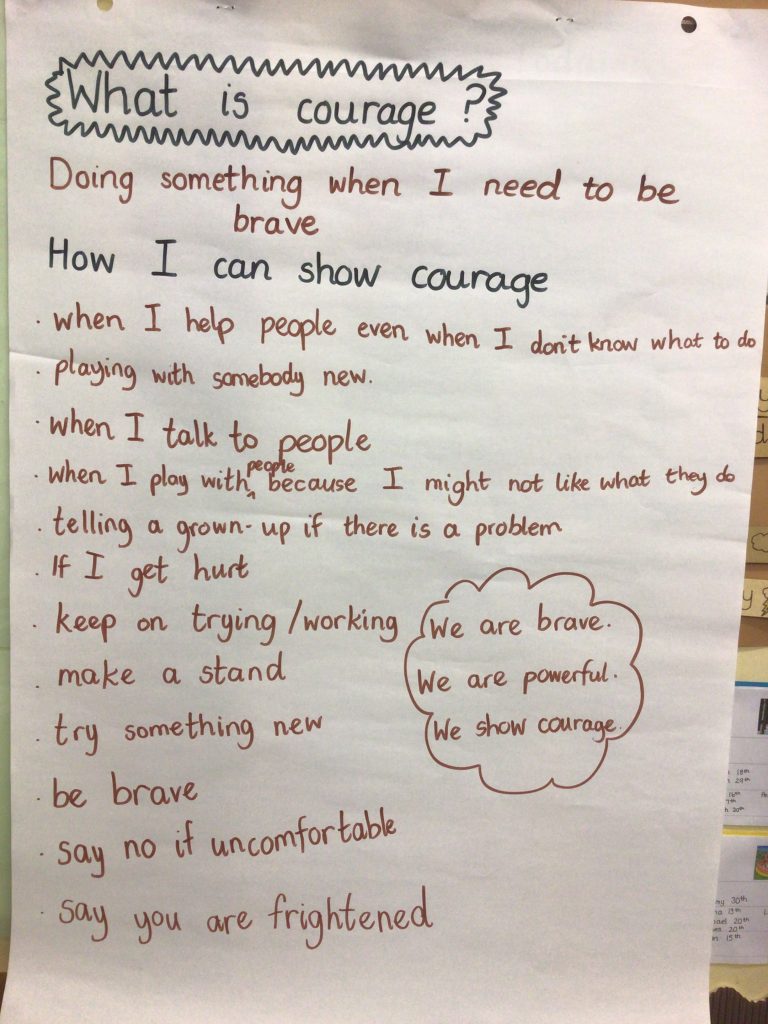 What is courage?
Doing something when I need to be
brave
How I can show courage
· when I help people even when I don't know what to do
· playing with somebody new.
· when I talk to people
· when I play with people because I might not like what they do
· telling a grown-up if there is a problem
· If I get hurt
· keep on trying/working
· make a stand
· try something new
· be brave
· say no if uncomfortable
· say you are frightened
We are brave.
We are powerful.
We show courage.
18th
29th
16th
20th
30th
13th
20th
20th
15th